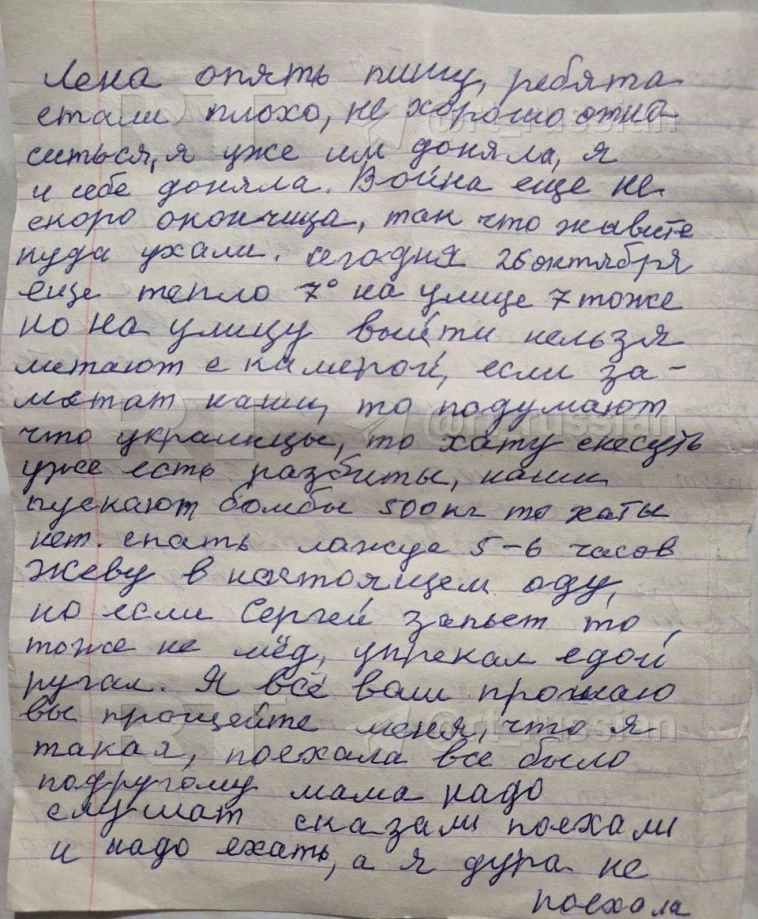 Лена опять пишу, ребята
стали плохо, не хорошо отно-
ситься, я уже им доняла, я
и себе доняла. Война еще не
скоро окончица, так что живите
куда ухали. сегодня 26 октября
еще тепло 7° на улице 7 тоже
но на улицу выйти нельзя
летают с камерой, если за-
метат наши, то подумают
что украинцы, то хату снесуть
уже есть разбиты, наши
пускают бомбы 500 кг то хаты
нет. спать лажуся 5-6 часов
Жеву в настоящем аду,
но если Сергей запьет то,
тоже не мёд, упрекал едой
ругал. Я всё вам прощаю
вы прощейте меня, что я
такая, поехала все было
подругому мама надо
слушат сказали поехали
и надо ехать, а я дура не
поехала
RT @rt_russian
RT @rt_russian
RT @rt_russian